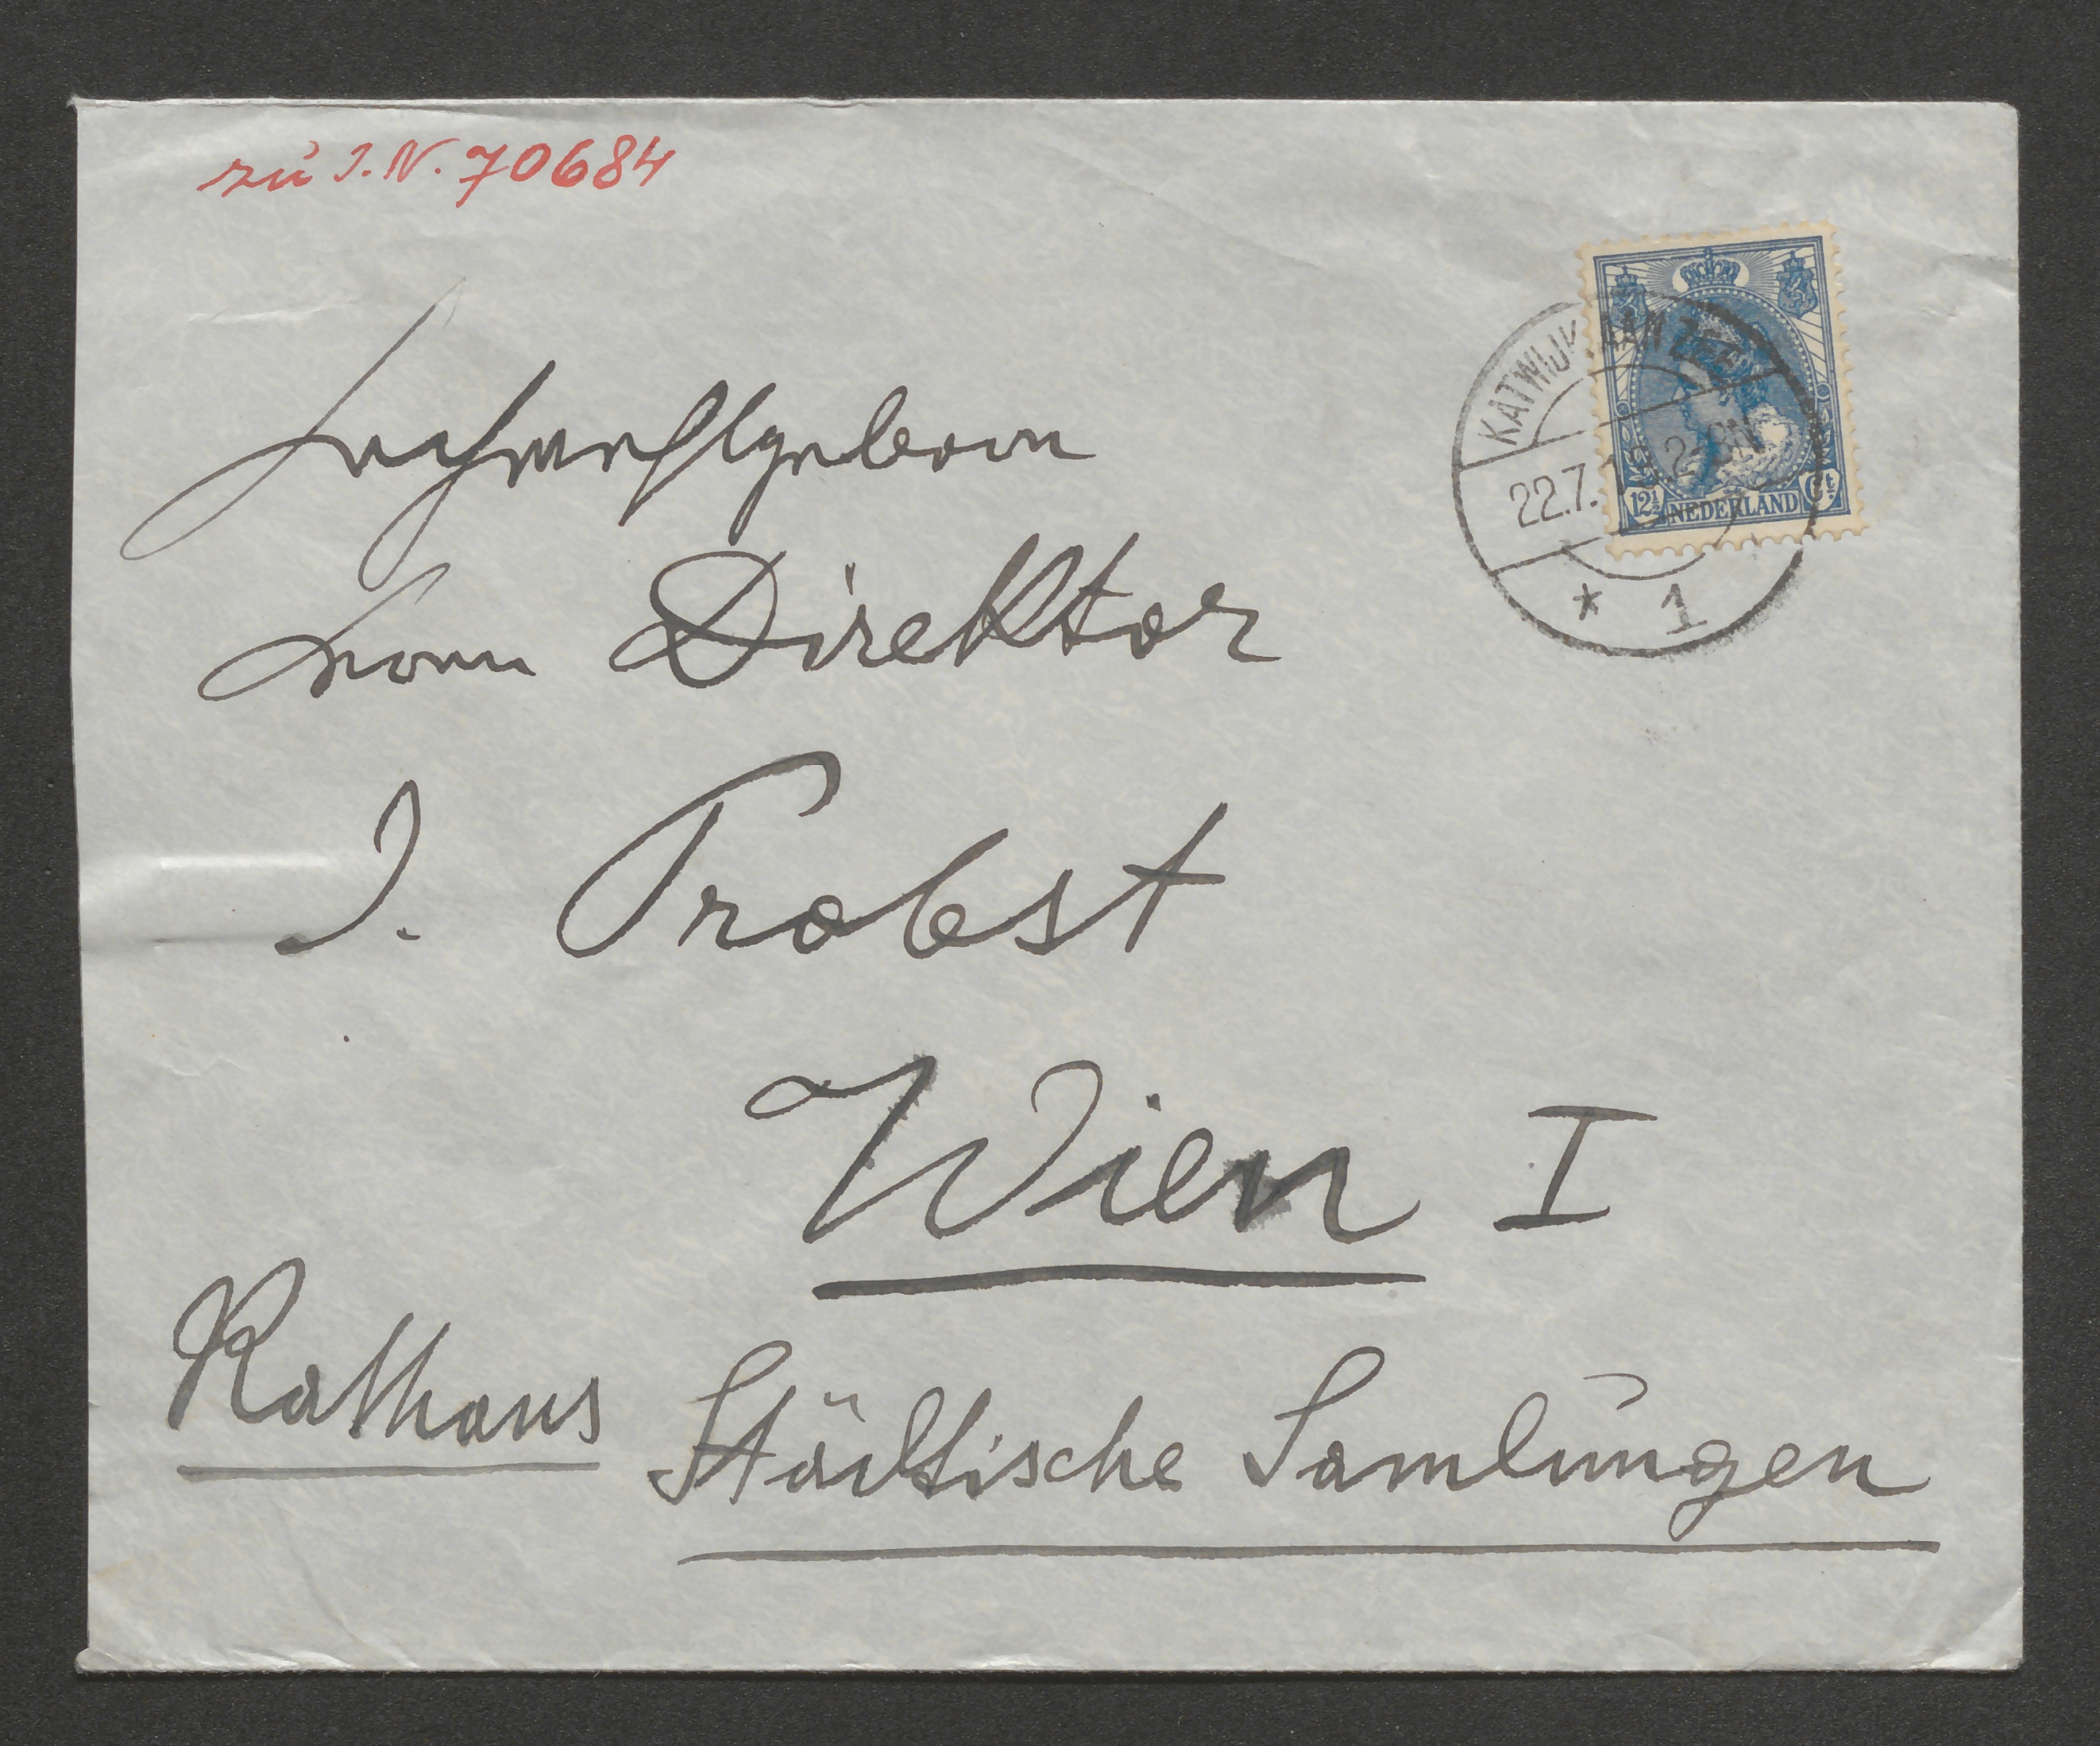 zu I.N. 70684
Hochwohlgeboren
Herrn Direktor
J. Probst
Wien I
Rathaus Städtische Samlungen
KATWIJK AAN ZEE
22.7. 2-3N
* 1
12½ NEDERLAND Ct